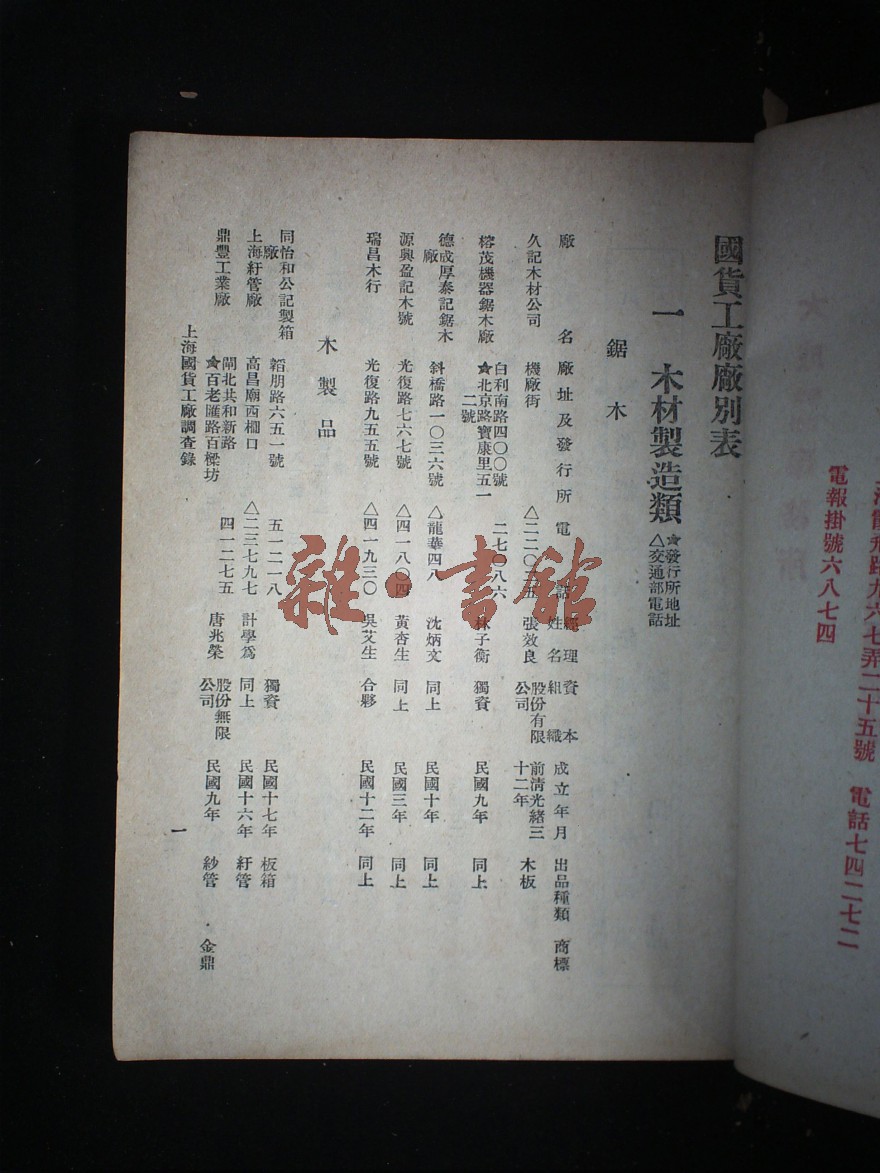 國貨工廠廠別表
一　木材製造類
★發行所地址
△交通部電話
鋸木
廠名　廠址及發行所　電話　經理姓名　資本組織　成立年月　出品種類　商標
久記木材公司　機廠街　△二二〇三五　張效良　股份有限公司　前清光緒三十二年　木板
榕茂機器鋸木廠　白利南路四〇〇號　★北京路寶康里五一二號　二七〇八六　林子衡　獨資　民國九年　同上
德成厚泰記鋸木廠　斜橋路一〇三六號　△龍華四八　沈炳文　同上　民國十年　同上
源興盈記木號　光復路七六七號　△四一八〇四　黃杏生　同上　民國三年　同上
瑞昌木行　光復路九五五號　△四一九三〇　吳艾生　合夥　民國十二年　同上
木製品
同怡和公記製箱廠　韜朋路六五一號　五一二一八　獨資　民國十七年　板箱
上海紆管廠　高昌廟西柵口　△二三七九七　計學爲　同上　民國十六年　紆管
鼎豐工業廠　閘北共和新路　★百老匯路百樑坊　四一二七五　唐兆榮　股份無限公司　民國九年　紗管　金鼎
上海國貨工廠調查錄
一
路九六七弄二十五號　電話七四二七二
電報掛號六八七四
雜·書館